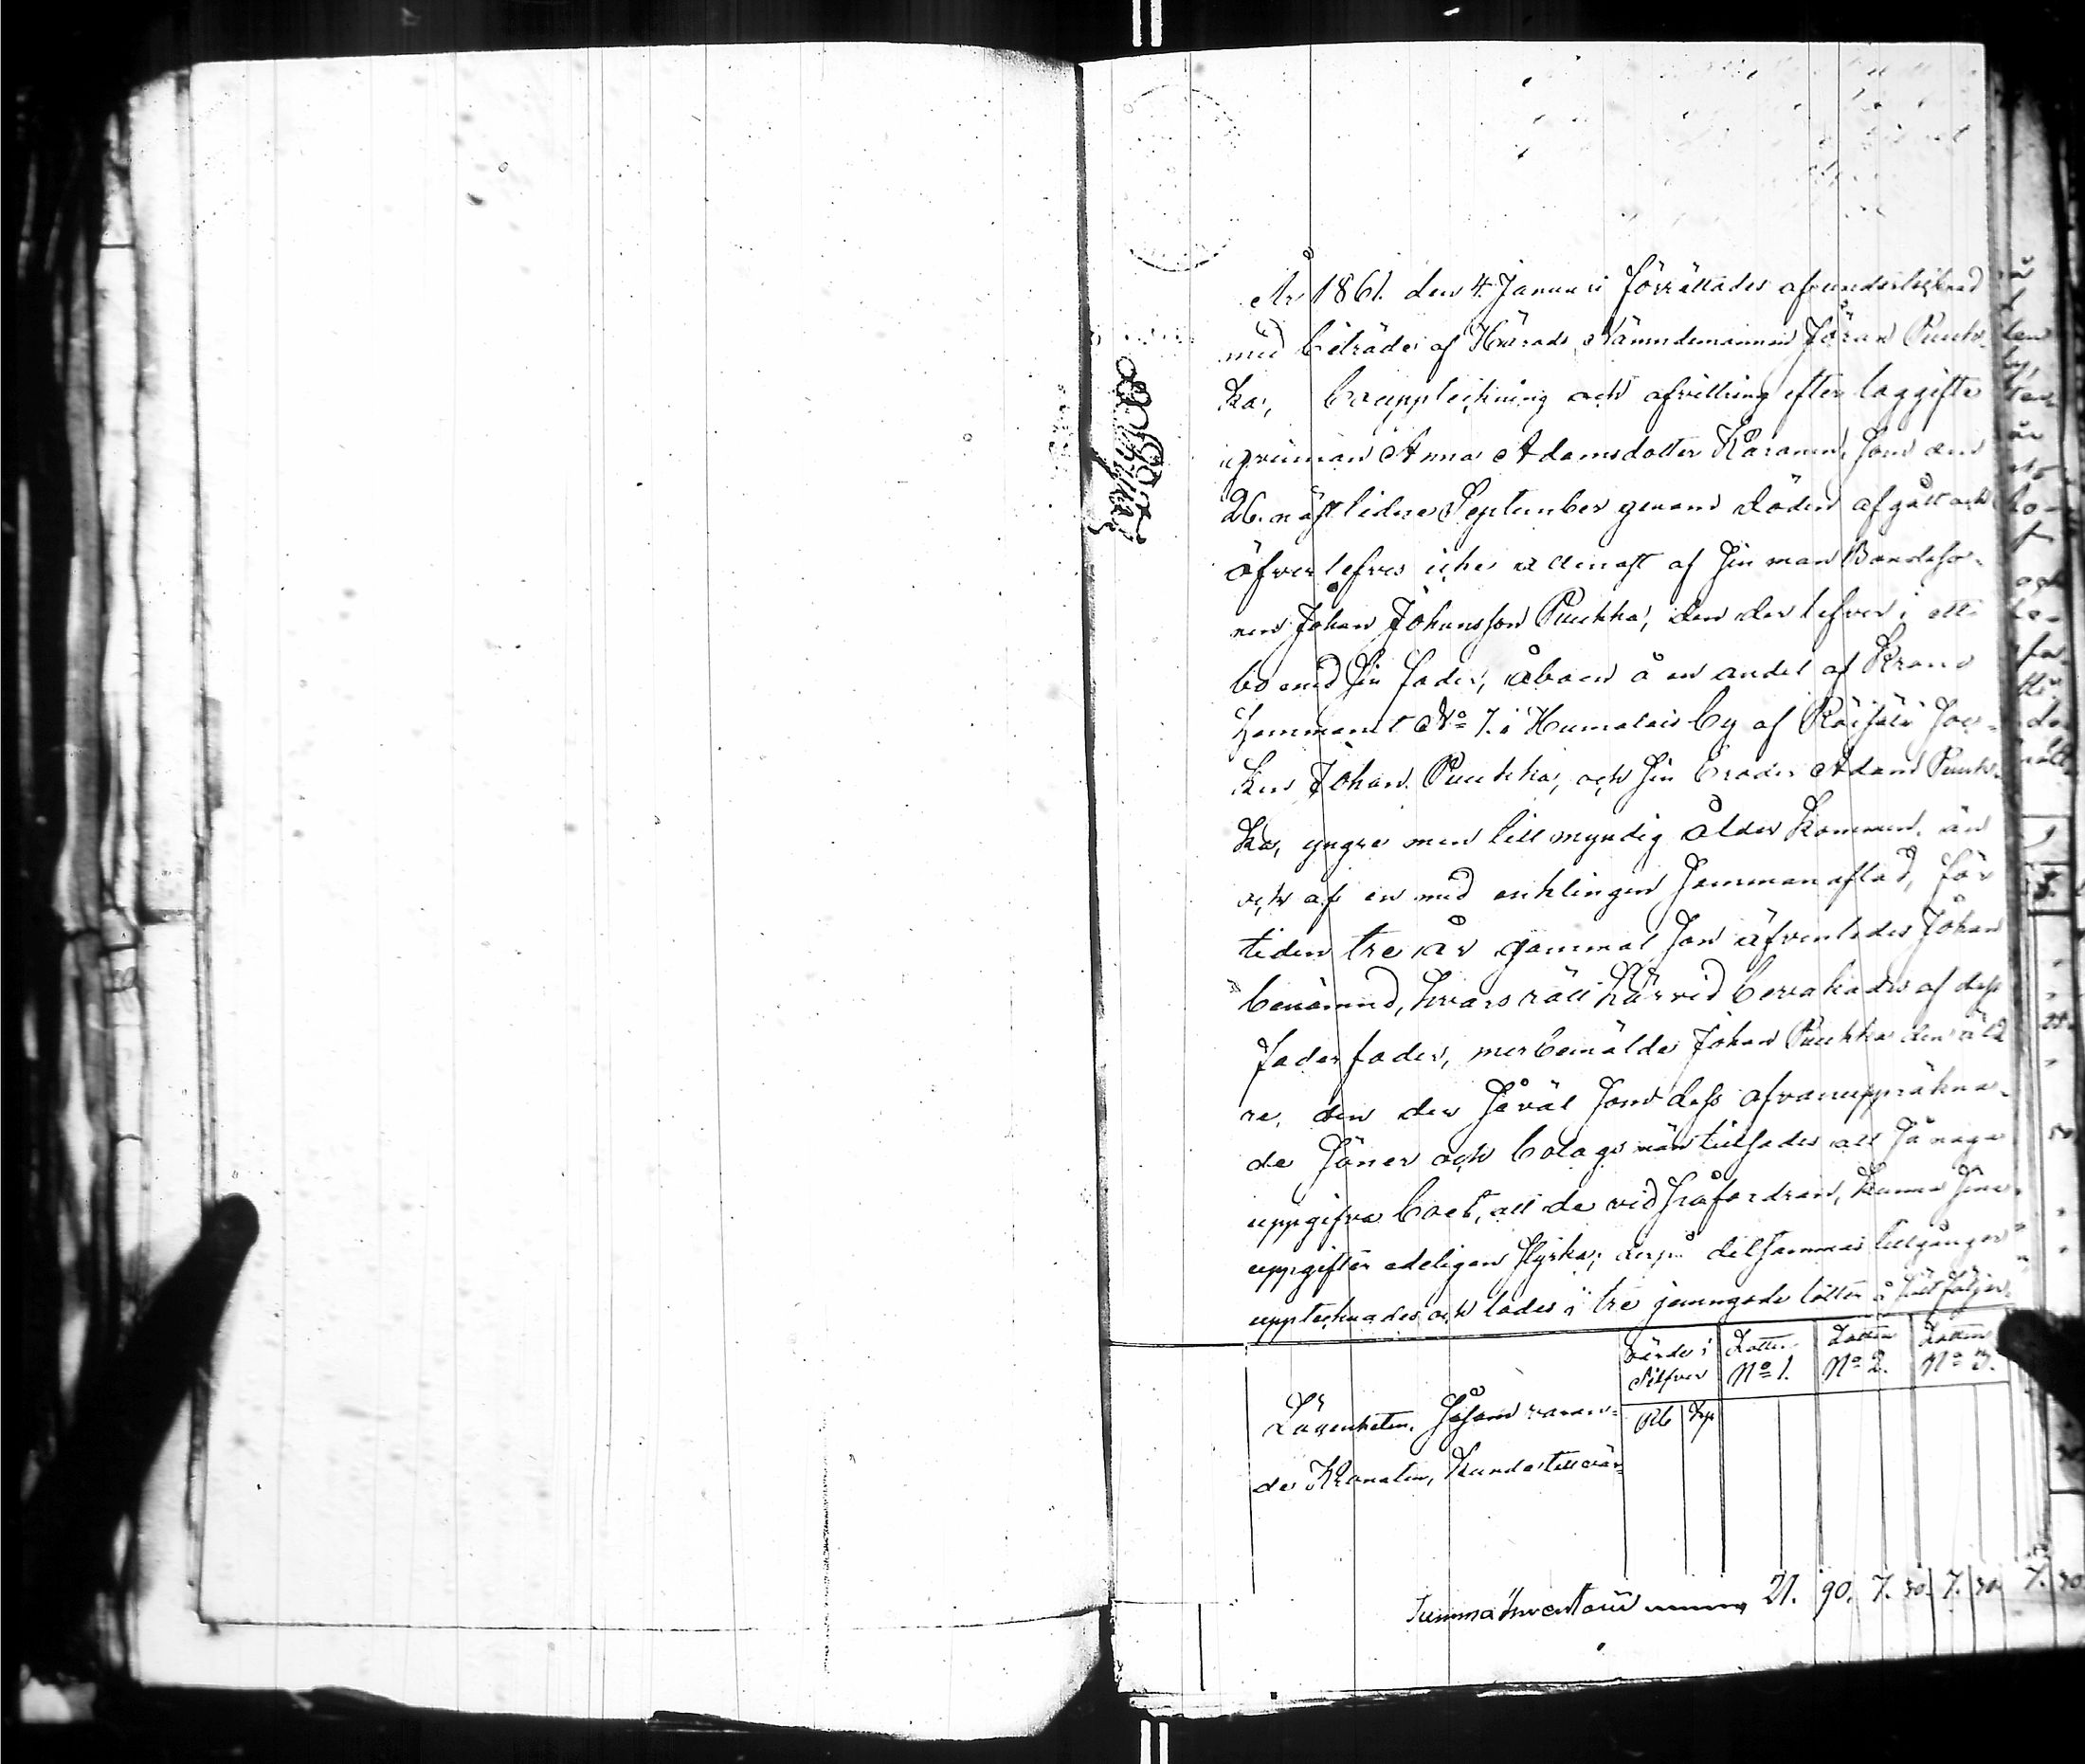 År 1861. den 4. Januari förrättades af undertecknad
med biträde af Härads Nämndemannen Jöran Puuk-
ka, bouppteckning och afvittring efter laggifta
qvinnan Anna Adamsdotter Käränen, som den
26. nästlidne September genom döden afgått och
öfverlefves icke allenast af sin man Bondeso-
nen Johan Johansson Puukka, den der lefver i ett
bo med sin fader, åboen å en andel af Krono
hemmanet No 7. i Humalais by af Räisälä Soc-
ken Johan Puukka, och sin broder Adam Puuk-
ka, yngre men till myndig ålder kommen, än
och af en med enklingen samman aflad, för
tiden tre år gammal son äfvenledes Johan
benämnd, hvars rätt härvid bevakades af dess
faderfader, merbemälde Johan Puukka den äld
re, den der såväl som dess ofvanuppräkna-
de söner och bolagsmän tillsades att så noga
uppgifva boet, att de vid påfordran, kunna sina
uppgifter edeligen styrka; derpå delsammas tillgångar
upptecknades och lades i tre jemngoda lotter å sätt följer:
Värde i Silfver | Lotten No 1. | Lotten No 2. | Lotten No 3.
Rb | Kp
Lägenheten, såsom varan-
de Kronaten, kunde till vär-
Summa Inventarii 21. 90. 7. 30. 7. 30. 7. 30.